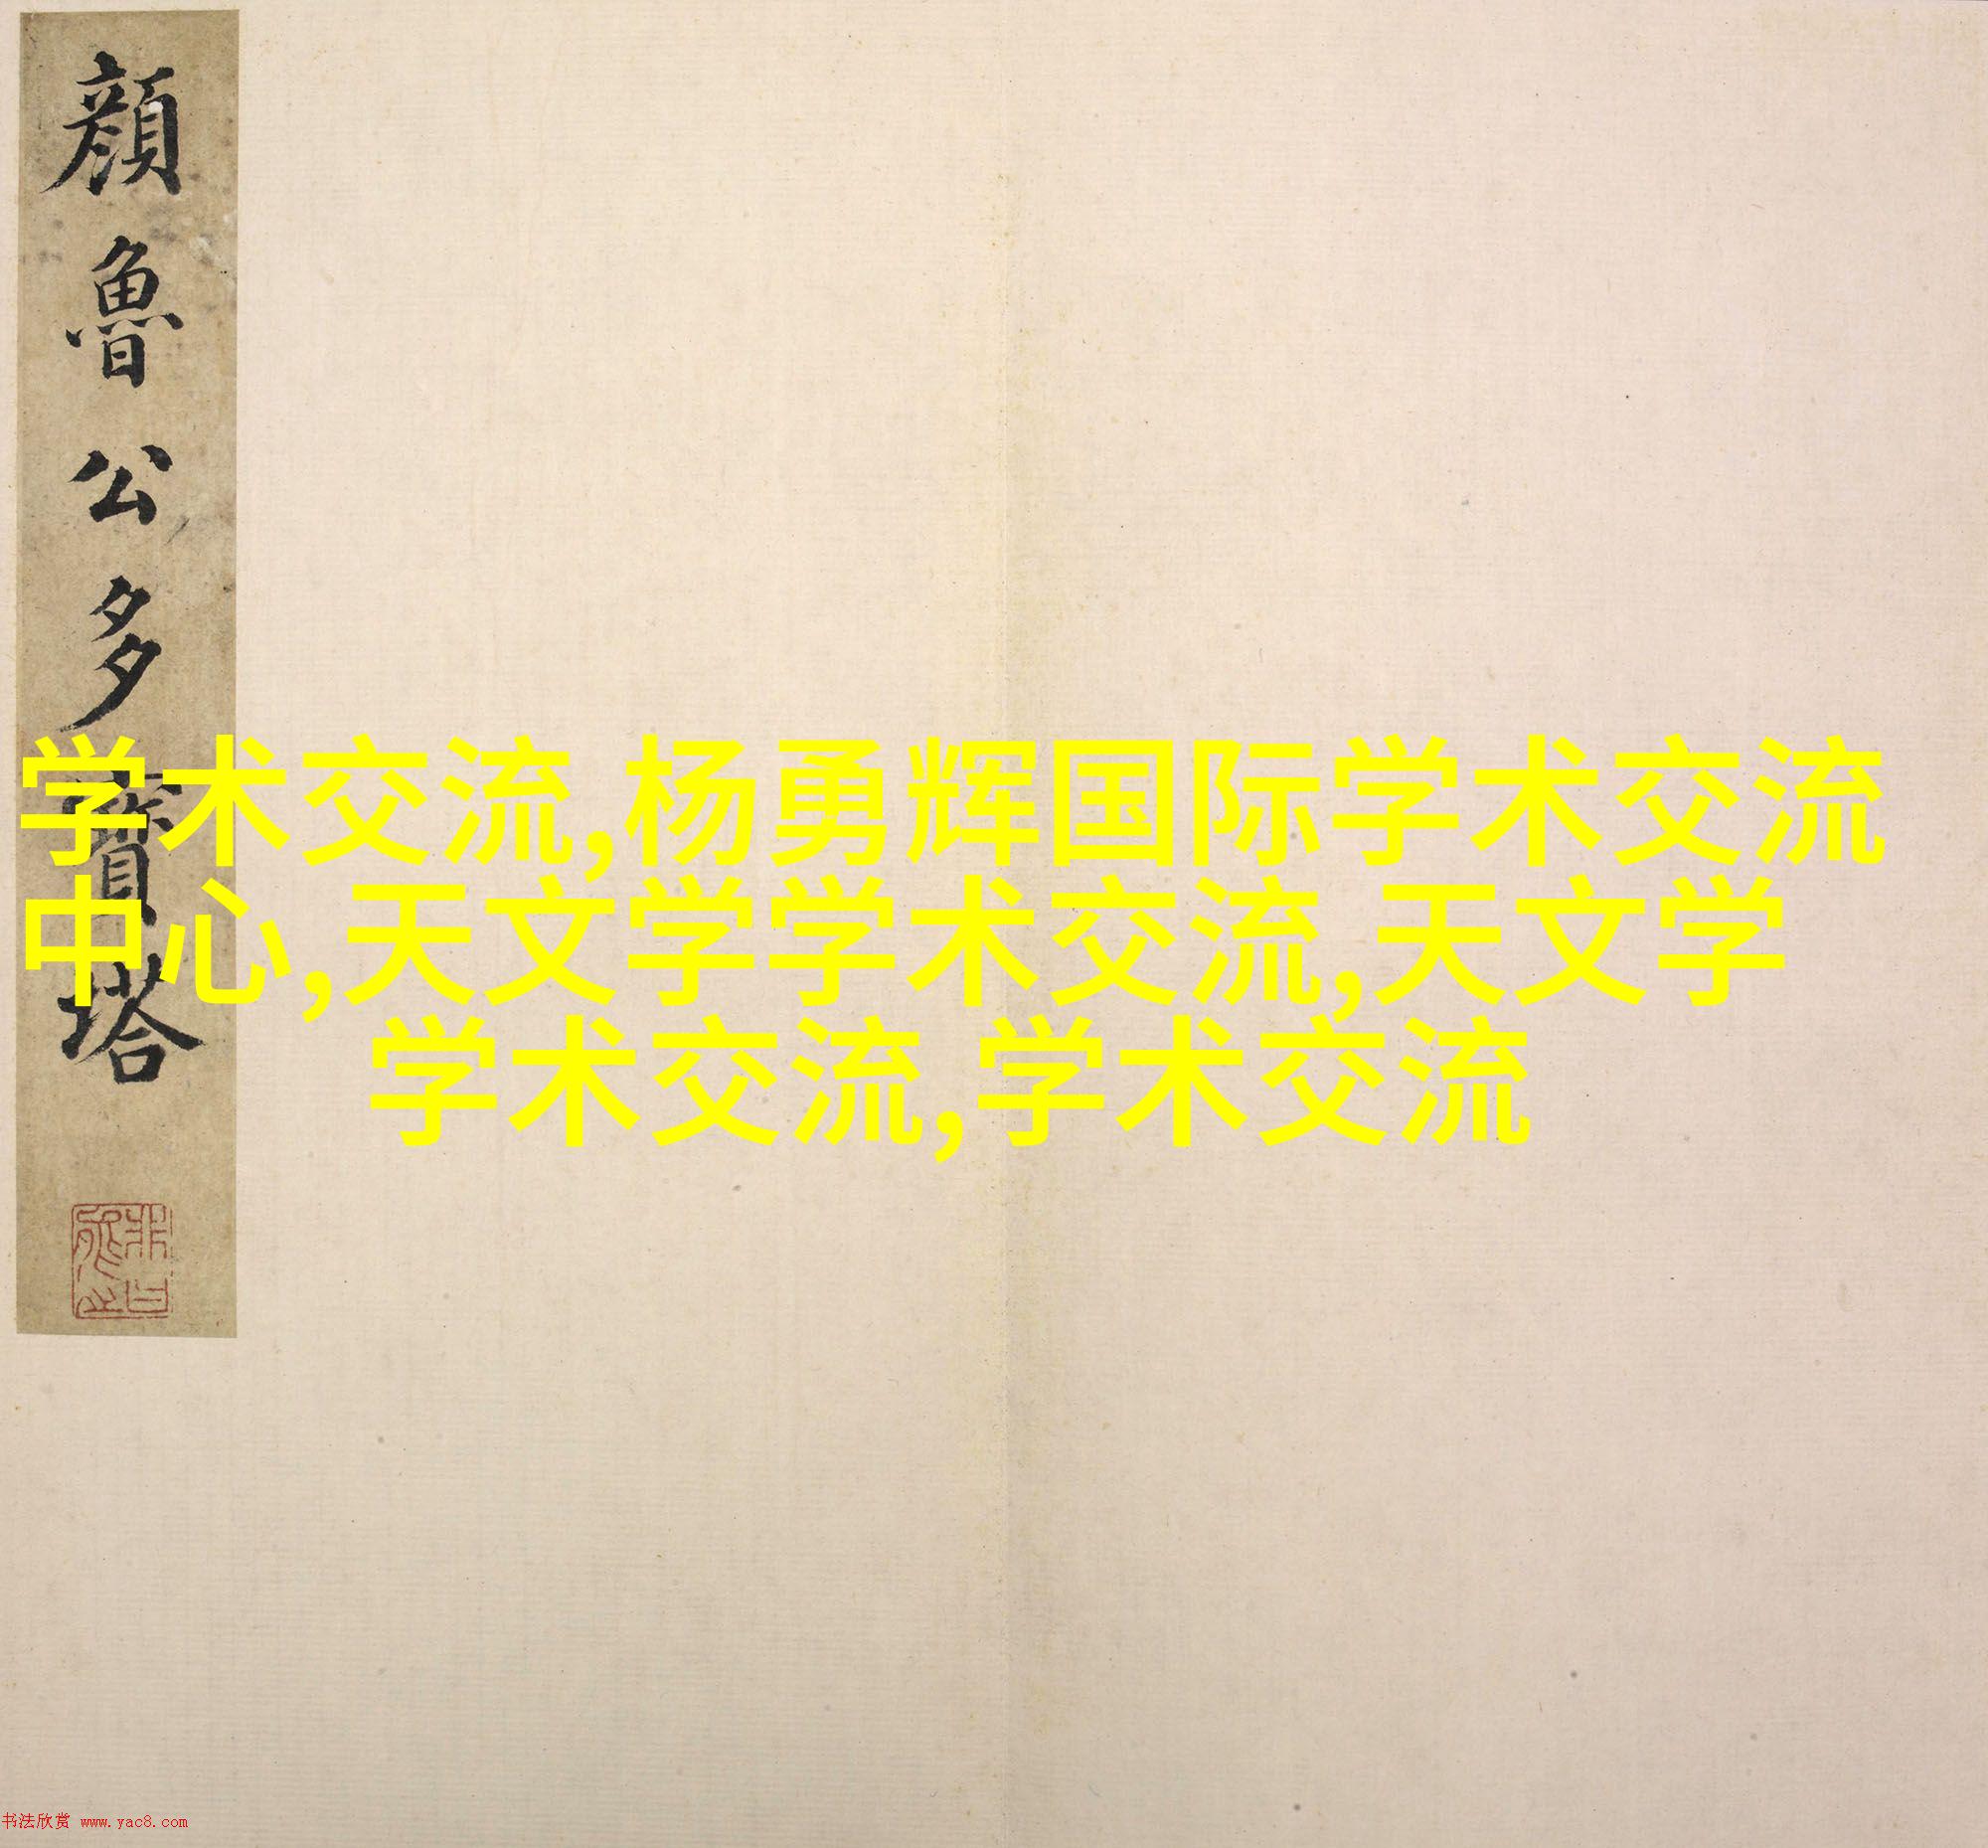 顔魯公多寶塔
学术交流,杨勇辉国际学术交流
中心,天文学学术交流,天文学
学术交流,学术交流
书法欣赏 www.yac8.com